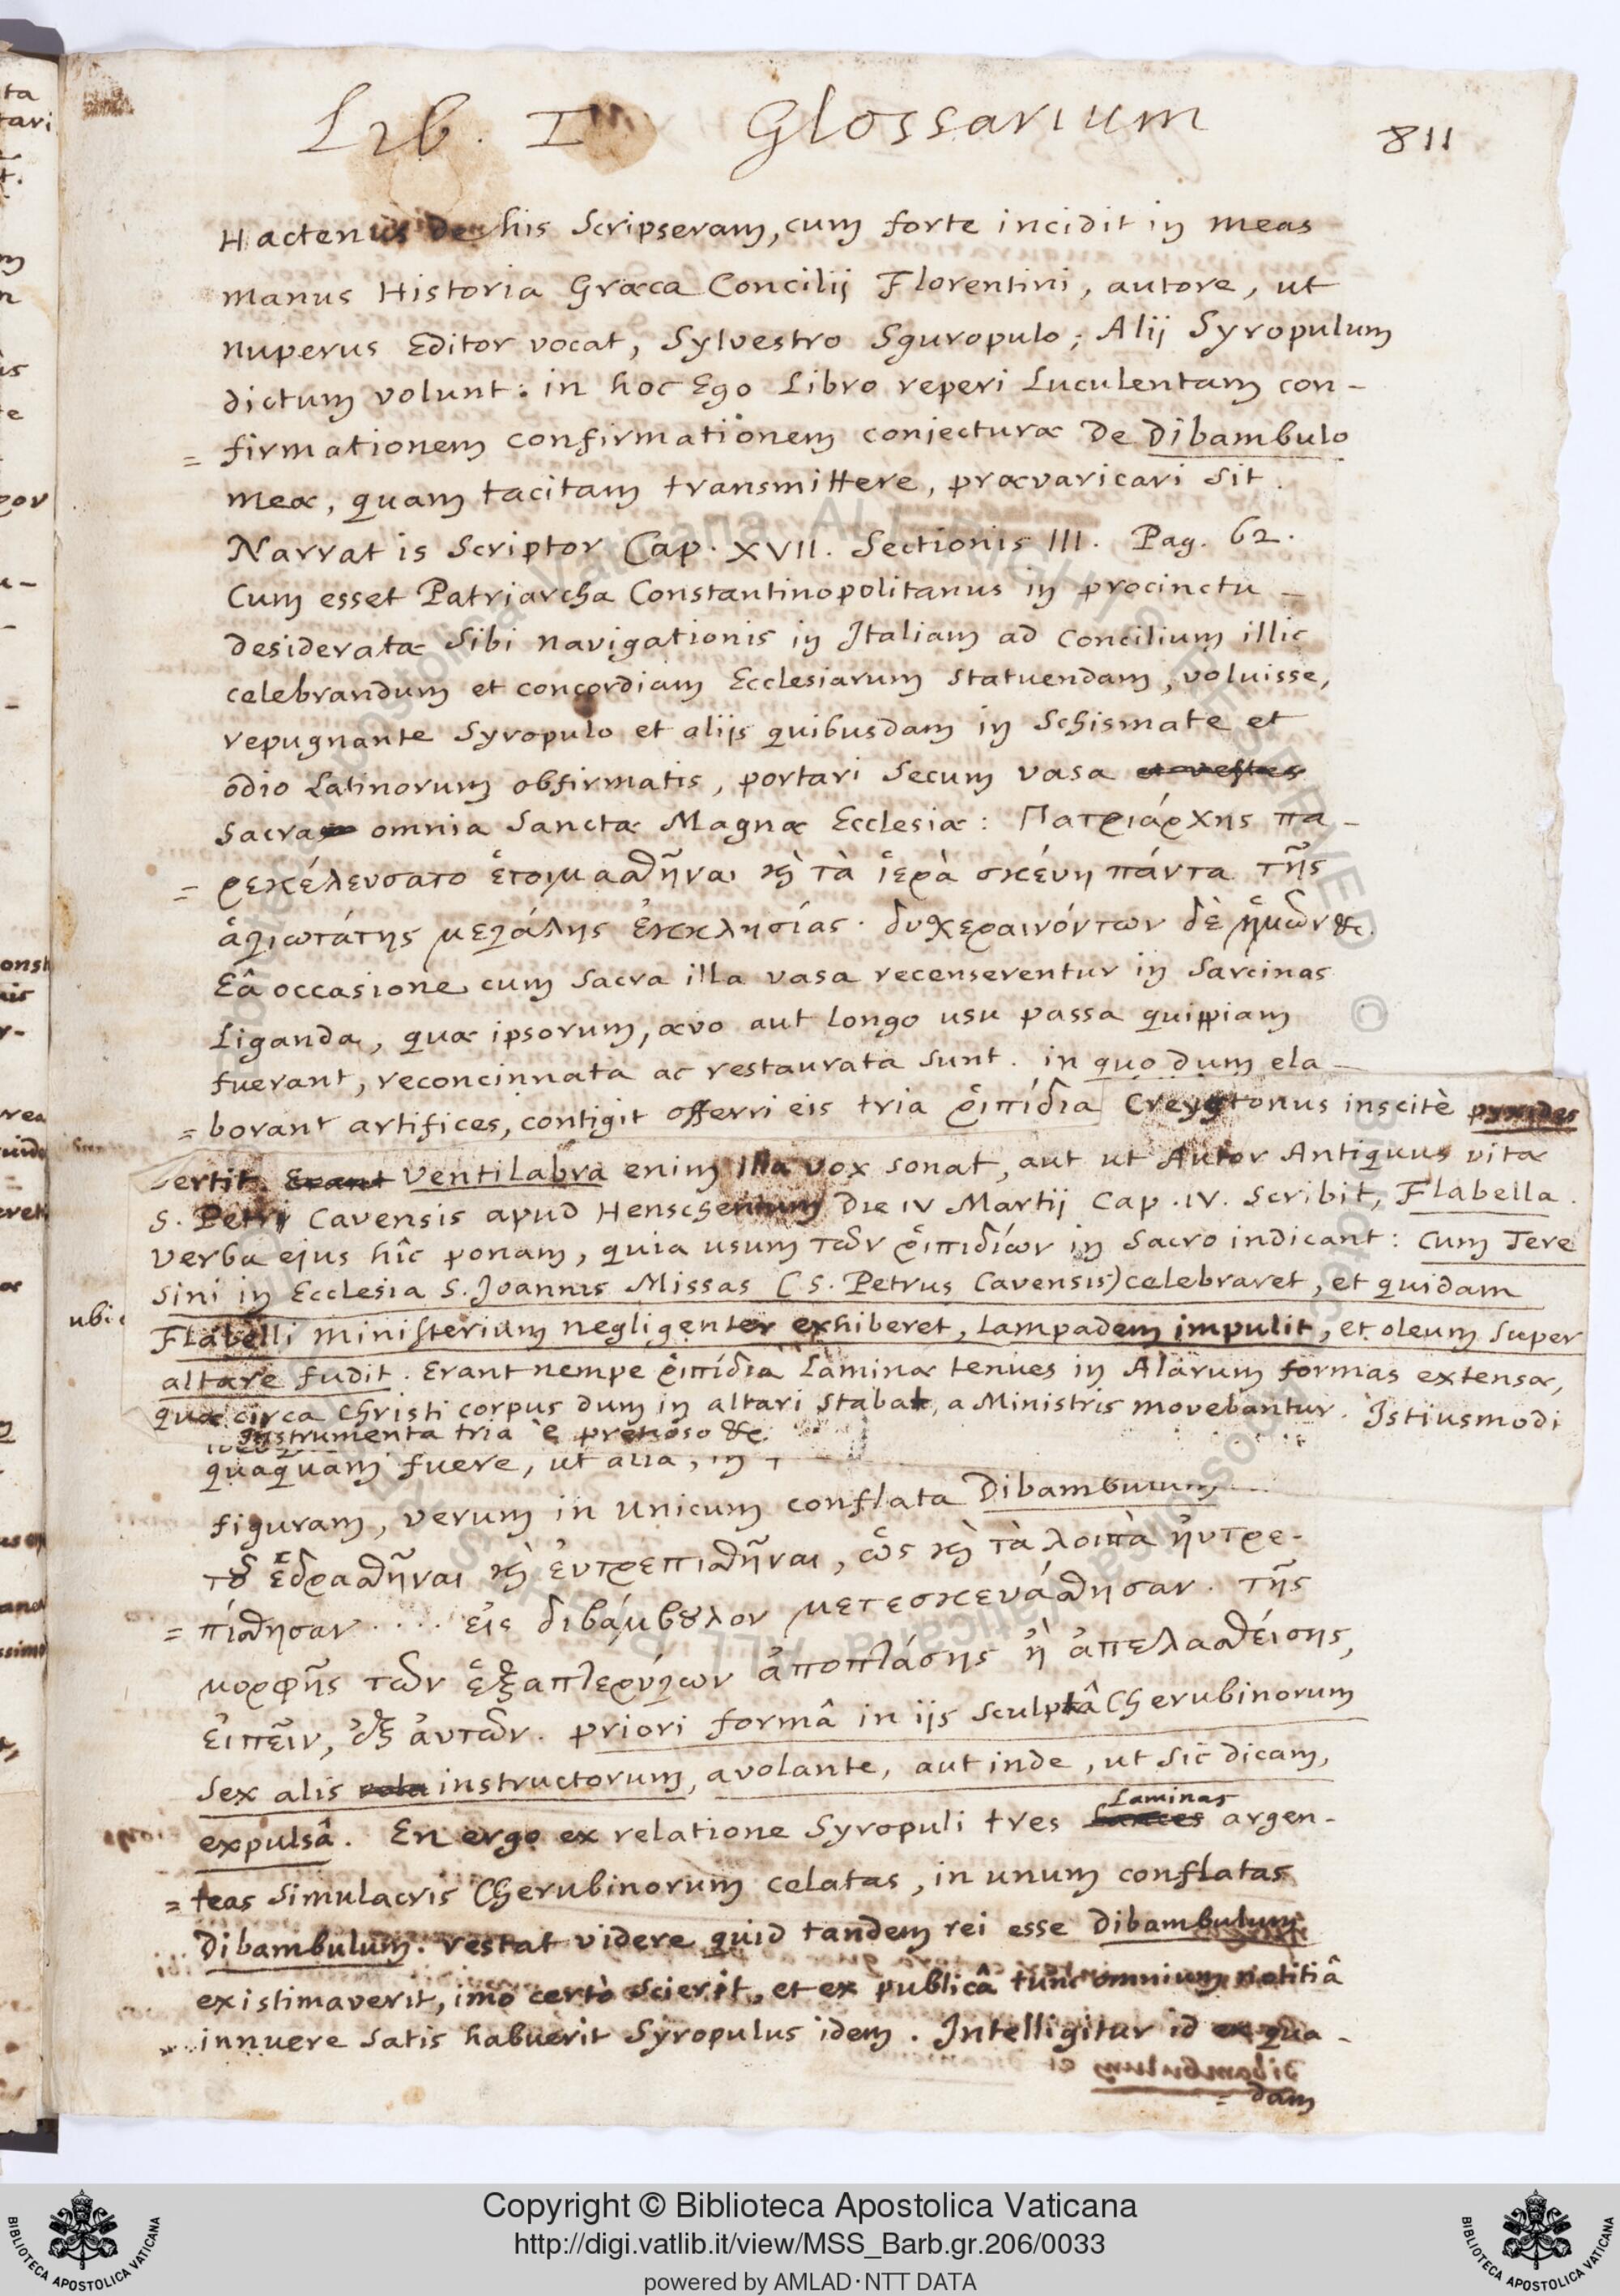 Lib. I<sup>us</sup> Glossarium 811
Hactenus de his Scripseram, cum forte incidit in meas
manus Historia Græca Concilij Florentini, autore, ut
nuperus Editor vocat, Sylvestro Sguropulo; Alij Syropulum
dictum volunt: in hoc Ego Libro reperi Luculentam con-
= firmationem confirmationem coniecturæ De Dibambulo
meæ, quam tacitam transmittere, prævaricari sit.
Narrat is Scriptor Cap. XVII. Sectionis III. Pag. 62.
Cum esset Patriarcha Constantinopolitanus in procinctu
desideratæ sibi navigationis in Italiam ad Concilium illic
celebrandum et concordiam Ecclesiarum statuendam, voluisse,
repugnante Syropulo et alijs quibusdam in Schismate et
odio Latinorum obfirmatis, portari secum vasa et vestes
Sacra omnia Sanctæ Magnæ Ecclesiæ: Πατριάρχης πα-
= ρεκέλευσατο ἑτοιμασθῆναι καὶ τὰ ἱερὰ σκέυη πάντα τῆς
ἁγιωτάτης μεγάλης ἐκκλησίας. δυχεραινόντων δὲ ἡμῶν &c.
Eâ occasione cum Sacra illa vasa recenserentur in Sarcinas
Liganda, quæ ipsorum, ævo aut Longo usu passa quippiam
fuerant, reconcinnata ac restaurata sunt. in quo dum ela-
= borant artifices, contigit offerri eis tria ῥιπίδια Creygtonus inscitè pyxides
vertit. Erant Ventilabra enim illa vox sonat, aut ut Autor Antiquus vitæ
S. Petri Cavensis apud Henschenium Die IV Martij Cap. IV. scribit, Flabella.
Verba ejus hîc ponam, quia usum τῶν ῥιπιδίων in Sacro indicant: Cum Tere
sini in Ecclesia S. Joannis Missas (S. Petrus Cavensis) celebraret, et quidam
ubi
Flabelli ministerium negligenter exhiberet, Lampadem impulit, et oleum super
altare fudit. Erant nempe ῥιπίδια Laminæ tenues in Alarum formas extensæ,
quæ circa Christi corpus dum in altari stabat, a Ministris movebantur. Istiusmodi
instrumenta tria è pretioso &c.
quaquam fuere, ut alia, in
figuram, verum in unicum conflata Dibambulum
τοῦ ἑδρασθῆναι καὶ ἐυτρεπισθῆναι, ὡς καὶ τὰ λοιπὰ ἠυτρε-
= πίσθησαν .... εἰς διβάμβουλον μετεσκευάσθησαν. τῆς
μορφῆς τῶν ἑξαπτερύγων ἀποπτάσης ἢ ἀπελασθείσης,
ἐιπεῖν, ἐξ ἀυτῶν. priori formâ in ijs sculptâ Cherubinorum
Sex alis instructorum, avolante, aut inde, ut sic dicam,
Laminas
expulsâ. En ergo ex relatione Syropuli tres Lances argen-
= teas simulacris Cherubinorum celatas, in unum conflatas
Dibambulum. restat videre quid tandem rei esse Dibambulum
existimaverit, imo certò scierit, et ex publicâ tunc omnium notitiâ
innuere satis habuerit Syropulus idem. Intelligitur id ex qua-
= dam
Copyright © Biblioteca Apostolica Vaticana
http://digi.vatlib.it/view/MSS_Barb.gr.206/0033
powered by AMLAD·NTT DATA
BIBLIOTECA APOSTOLICA VATICANA
BIBLIOTECA APOSTOLICA VATICANA